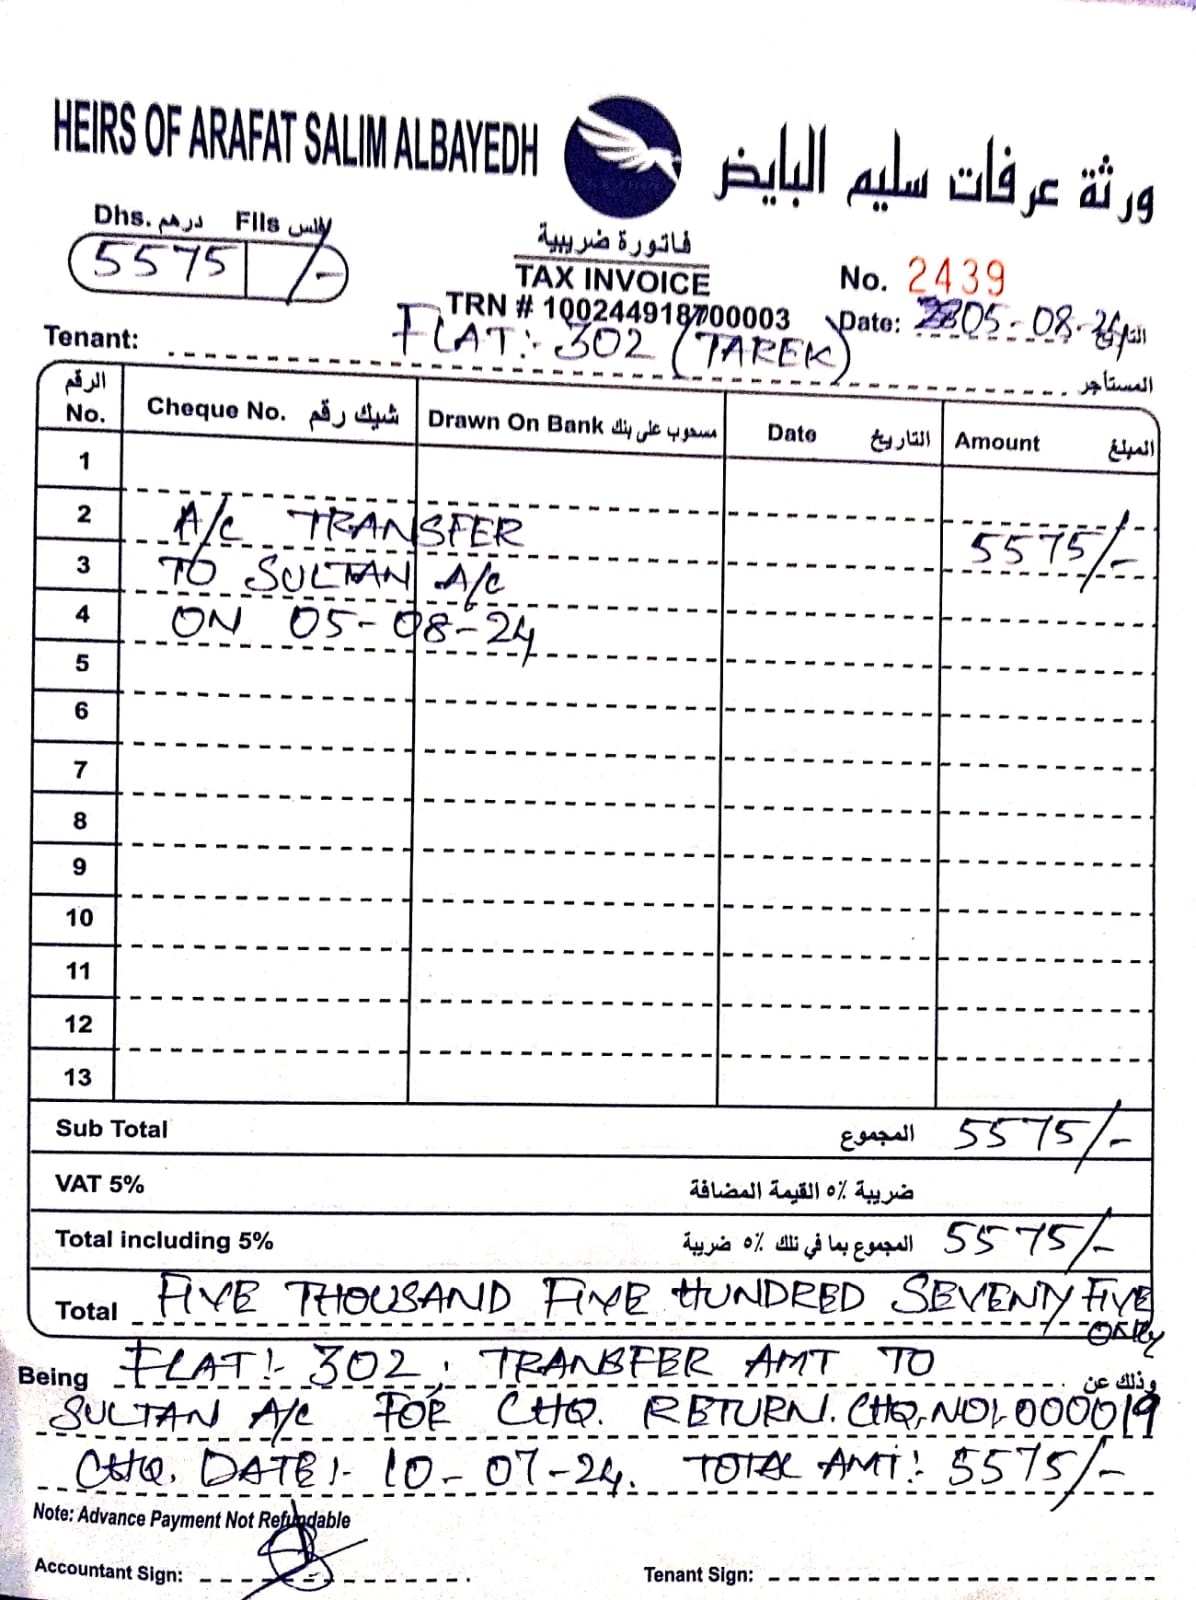 HEIRS OF ARAFAT SALIM ALBAYEDH
ورثة عرفات سليم البايض
Dhs. درهم Flls فلس
5575 /-
فاتورة ضريبية
TAX INVOICE
TRN # 100244918700003
No. 2439
Date: 05-08-24 التاريخ
Tenant: FLAT:- 302 (TAREK) المستأجر
الرقم No. Cheque No. شيك رقم Drawn On Bank مسحوب على بنك Date التاريخ Amount المبلغ
1
2 A/C TRANSFER 5575/-
3 TO SULTAN A/C
4 ON 05-08-24
5
6
7
8
9
10
11
12
13
Sub Total المجموع 5575/-
VAT 5% ضريبة ٥٪ القيمة المضافة
Total including 5% المجموع بما في تلك ٥٪ ضريبة 5575/-
Total FIVE THOUSAND FIVE HUNDRED SEVENTY FIVE
ONLY
Being FLAT:- 302, TRANSFER AMT TO وذلك عن
SULTAN A/C FOR CHQ. RETURN. CHQ.NO:-000019
CHQ. DATE:- 10-07-24. TOTAL AMT:- 5575/-
Note: Advance Payment Not Refundable
Accountant Sign:
Tenant Sign: